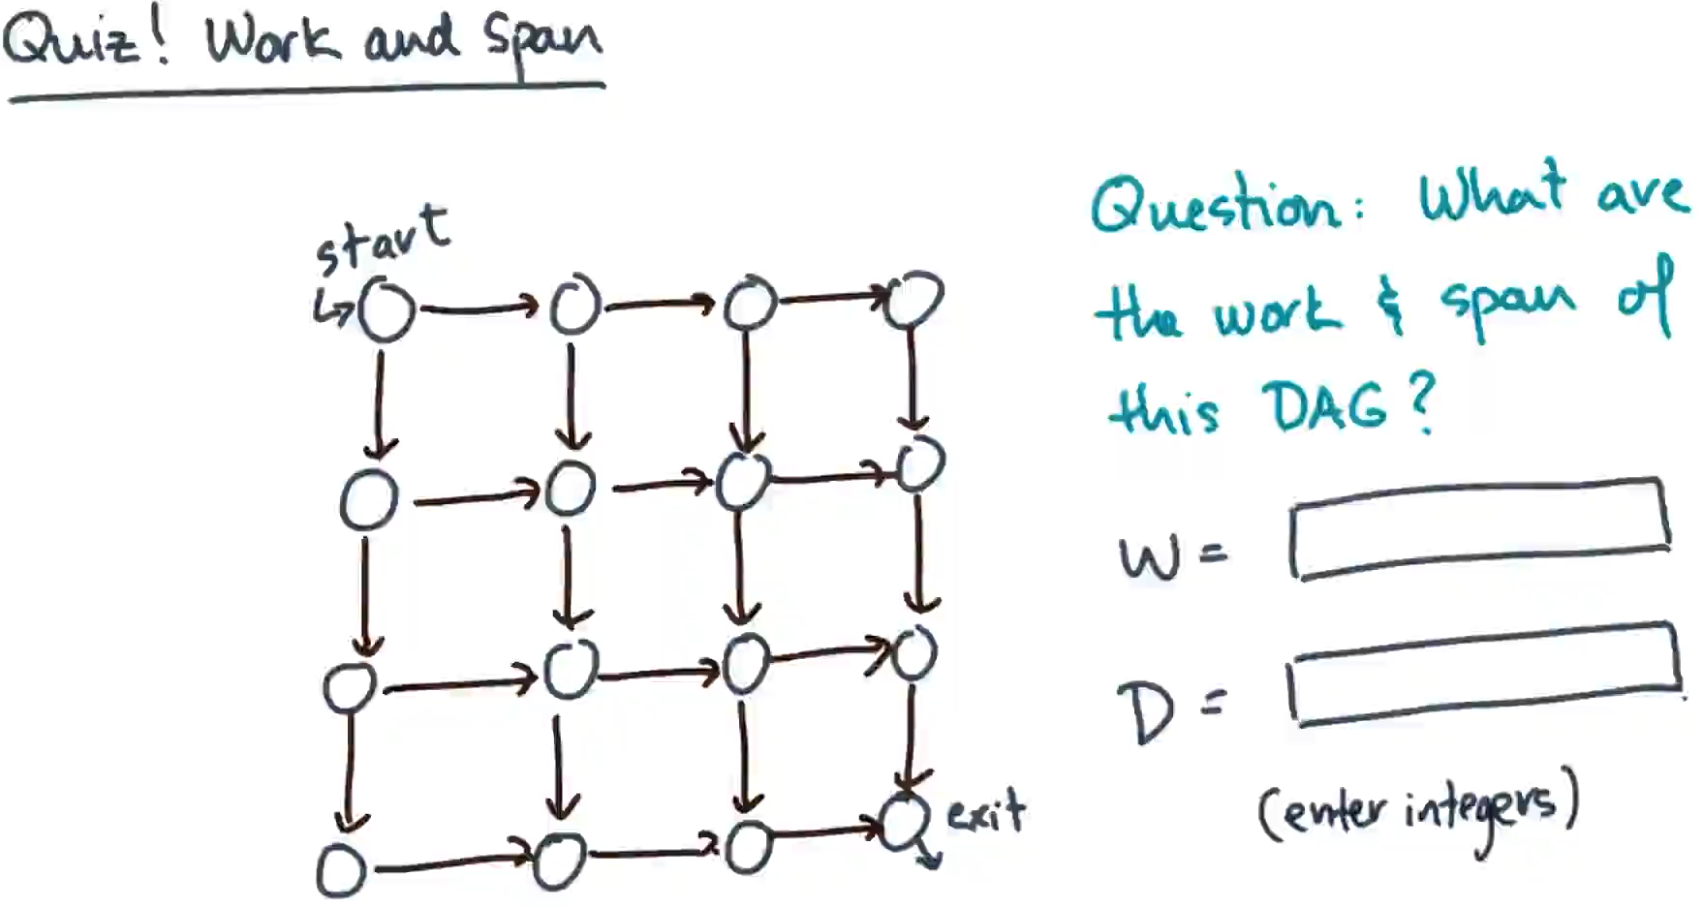 Quiz! Work and Span
start
Question: What are
the work & span of
this DAG?
W =
D =
(enter integers)
exit